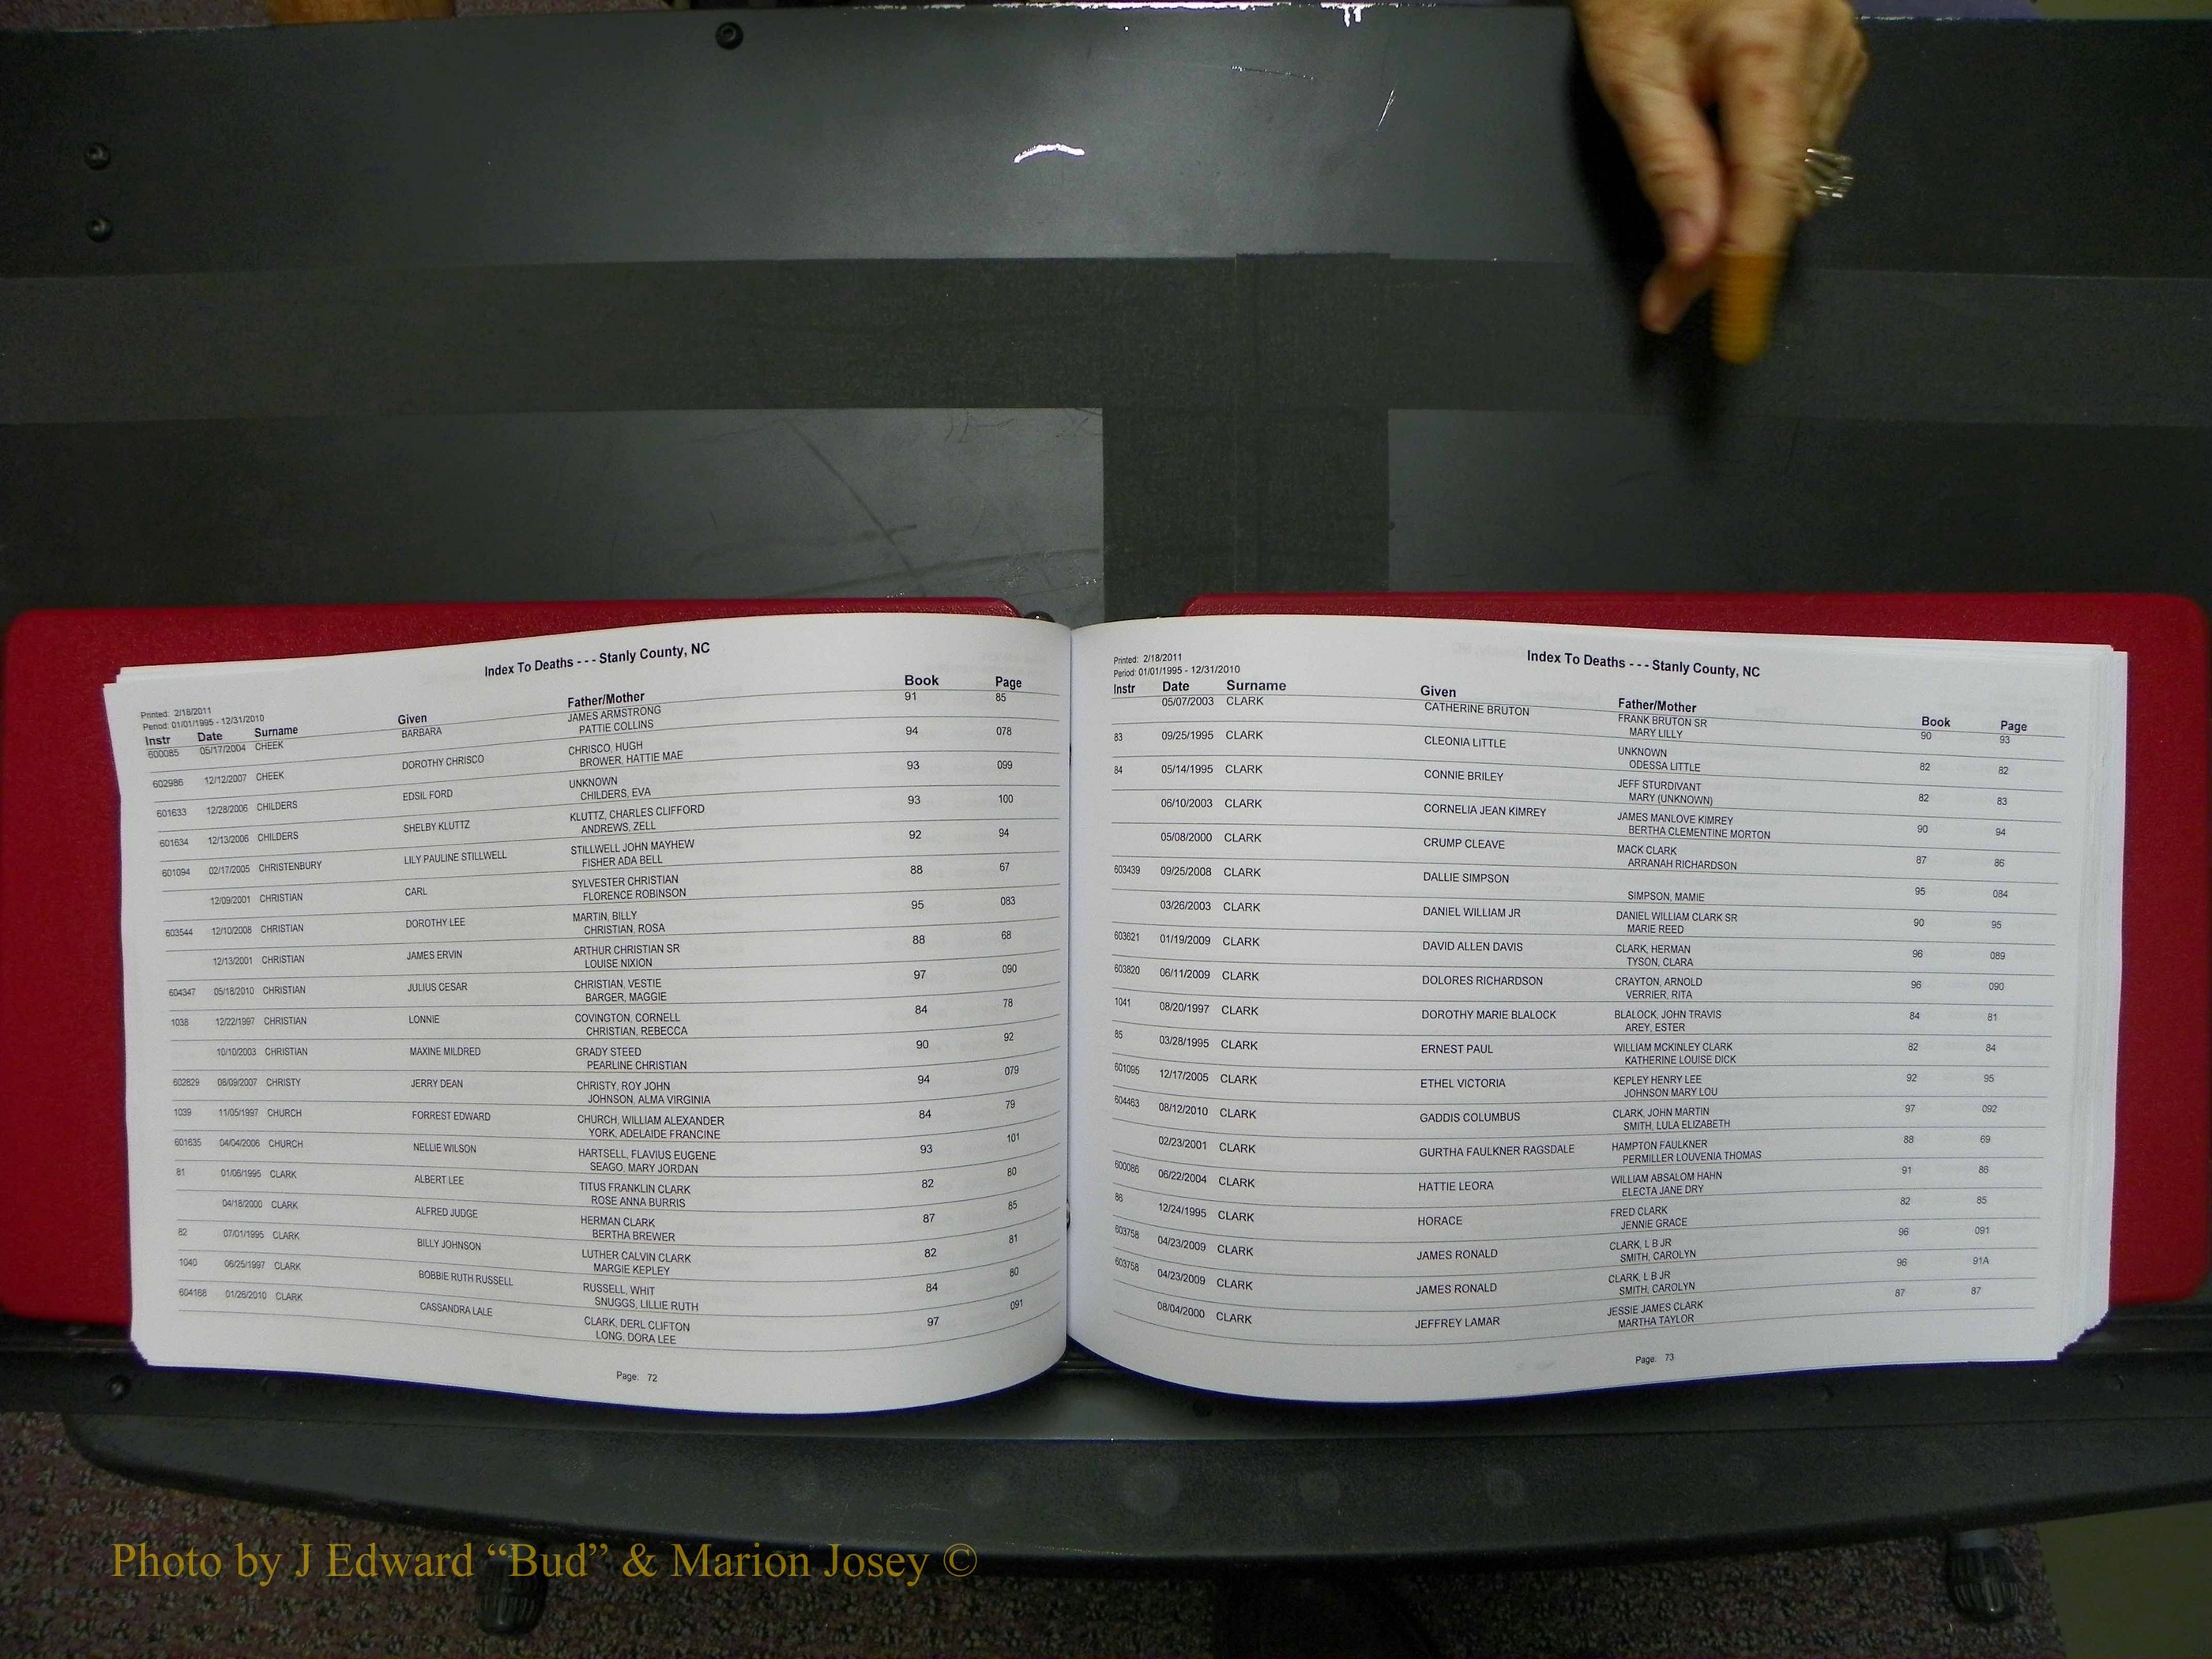 Index To Deaths - - - Stanly County, NC
Printed: 2/18/2011
Period: 01/01/1995 - 12/31/2010
Instr Date Surname Given Father/Mother Book Page
600085 05/17/2004 CHEEK BARBARA JAMES ARMSTRONG 91 85
PATTIE COLLINS
602986 12/12/2007 CHEEK DOROTHY CHRISCO CHRISCO, HUGH 94 078
BROWER, HATTIE MAE
601633 12/28/2006 CHILDERS EDSIL FORD UNKNOWN 93 099
CHILDERS, EVA
601634 12/13/2006 CHILDERS SHELBY KLUTTZ KLUTTZ, CHARLES CLIFFORD 93 100
ANDREWS, ZELL
601094 02/17/2005 CHRISTENBURY LILY PAULINE STILLWELL STILLWELL JOHN MAYHEW 92 94
FISHER ADA BELL
12/09/2001 CHRISTIAN CARL SYLVESTER CHRISTIAN 88 67
FLORENCE ROBINSON
603544 12/10/2008 CHRISTIAN DOROTHY LEE MARTIN, BILLY 95 083
CHRISTIAN, ROSA
12/13/2001 CHRISTIAN JAMES ERVIN ARTHUR CHRISTIAN SR 88 68
LOUISE NIXION
604347 05/18/2010 CHRISTIAN JULIUS CESAR CHRISTIAN, VESTIE 97 090
BARGER, MAGGIE
1038 12/22/1997 CHRISTIAN LONNIE COVINGTON, CORNELL 84 78
CHRISTIAN, REBECCA
10/10/2003 CHRISTIAN MAXINE MILDRED GRADY STEED 90 92
PEARLINE CHRISTIAN
602829 08/09/2007 CHRISTY JERRY DEAN CHRISTY, ROY JOHN 94 079
JOHNSON, ALMA VIRGINIA
1039 11/05/1997 CHURCH FORREST EDWARD CHURCH, WILLIAM ALEXANDER 84 79
YORK, ADELAIDE FRANCINE
601635 04/04/2006 CHURCH NELLIE WILSON HARTSELL, FLAVIUS EUGENE 93 101
SEAGO, MARY JORDAN
81 01/06/1995 CLARK ALBERT LEE TITUS FRANKLIN CLARK 82 80
ROSE ANNA BURRIS
04/18/2000 CLARK ALFRED JUDGE HERMAN CLARK 87 85
BERTHA BREWER
82 07/01/1995 CLARK BILLY JOHNSON LUTHER CALVIN CLARK 82 81
MARGIE KEPLEY
1040 06/25/1997 CLARK BOBBIE RUTH RUSSELL RUSSELL, WHIT 84 80
SNUGGS, LILLIE RUTH
604168 01/26/2010 CLARK CASSANDRA LALE CLARK, DERL CLIFTON 97 091
LONG, DORA LEE
Page: 72
Index To Deaths - - - Stanly County, NC
Printed: 2/18/2011
Period: 01/01/1995 - 12/31/2010
Instr Date Surname Given Father/Mother Book Page
05/07/2003 CLARK CATHERINE BRUTON FRANK BRUTON SR 90 93
MARY LILLY
83 09/25/1995 CLARK CLEONIA LITTLE UNKNOWN 82 82
ODESSA LITTLE
84 05/14/1995 CLARK CONNIE BRILEY JEFF STURDIVANT 82 83
MARY (UNKNOWN)
06/10/2003 CLARK CORNELIA JEAN KIMREY JAMES MANLOVE KIMREY 90 94
BERTHA CLEMENTINE MORTON
05/08/2000 CLARK CRUMP CLEAVE MACK CLARK 87 86
ARRANAH RICHARDSON
603439 09/25/2008 CLARK DALLIE SIMPSON 95 084
SIMPSON, MAMIE
03/26/2003 CLARK DANIEL WILLIAM JR DANIEL WILLIAM CLARK SR 90 95
MARIE REED
603621 01/19/2009 CLARK DAVID ALLEN DAVIS CLARK, HERMAN 96 089
TYSON, CLARA
603820 06/11/2009 CLARK DOLORES RICHARDSON CRAYTON, ARNOLD 96 090
VERRIER, RITA
1041 08/20/1997 CLARK DOROTHY MARIE BLALOCK BLALOCK, JOHN TRAVIS 84 81
AREY, ESTER
85 03/28/1995 CLARK ERNEST PAUL WILLIAM MCKINLEY CLARK 82 84
KATHERINE LOUISE DICK
601095 12/17/2005 CLARK ETHEL VICTORIA KEPLEY HENRY LEE 92 95
JOHNSON MARY LOU
604463 08/12/2010 CLARK GADDIS COLUMBUS CLARK, JOHN MARTIN 97 092
SMITH, LULA ELIZABETH
02/23/2001 CLARK GURTHA FAULKNER RAGSDALE HAMPTON FAULKNER 88 69
PERMILLER LOUVENIA THOMAS
600086 06/22/2004 CLARK HATTIE LEORA WILLIAM ABSALOM HAHN 91 86
ELECTA JANE DRY
86 12/24/1995 CLARK HORACE FRED CLARK 82 85
JENNIE GRACE
603758 04/23/2009 CLARK JAMES RONALD CLARK, L B JR 96 091
SMITH, CAROLYN
603758 04/23/2009 CLARK JAMES RONALD CLARK, L B JR 96 91A
SMITH, CAROLYN
08/04/2000 CLARK JEFFREY LAMAR JESSIE JAMES CLARK 87 87
MARTHA TAYLOR
Page: 73
Photo by J Edward “Bud” & Marion Josey ©